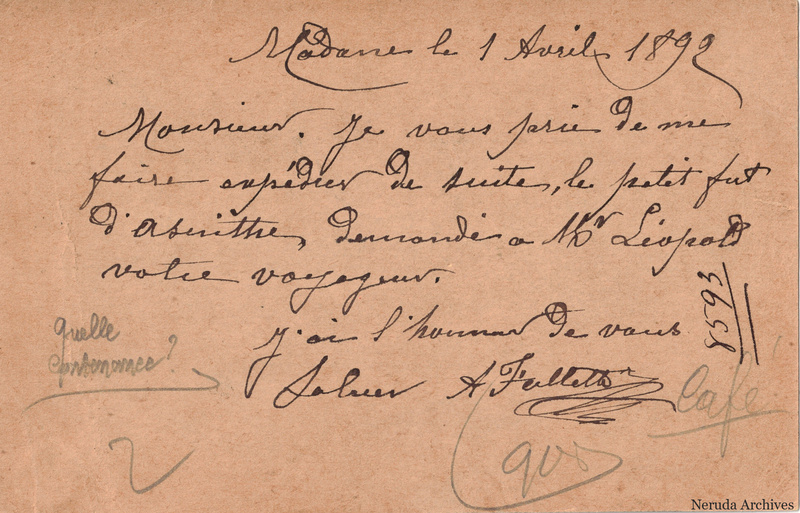 Modane le 1 Avril 1892
Monsieur. Je vous prie de me
faire expédier de suite, le petit fut
d'absinthe, demandé a Mr Léopold
votre voyageur.
J'ai l'honneur de vous
Saluer A Falletti
8593
quelle
contenance?
Café
2
Neruda Archives